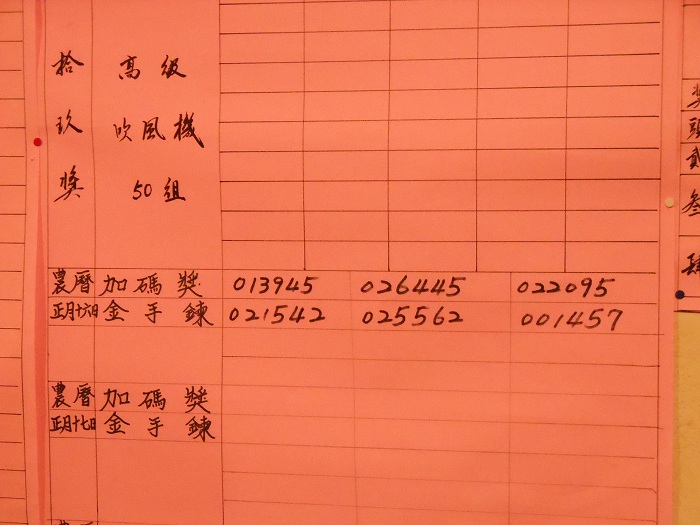 拾 高級
玖 吹風機
獎 50組
農曆 加碼獎 013945 026445 022095
正月十六日 金手鍊 021542 025562 001457
農曆 加碼獎
正月十七日 金手鍊
獎
頭
貳
叁